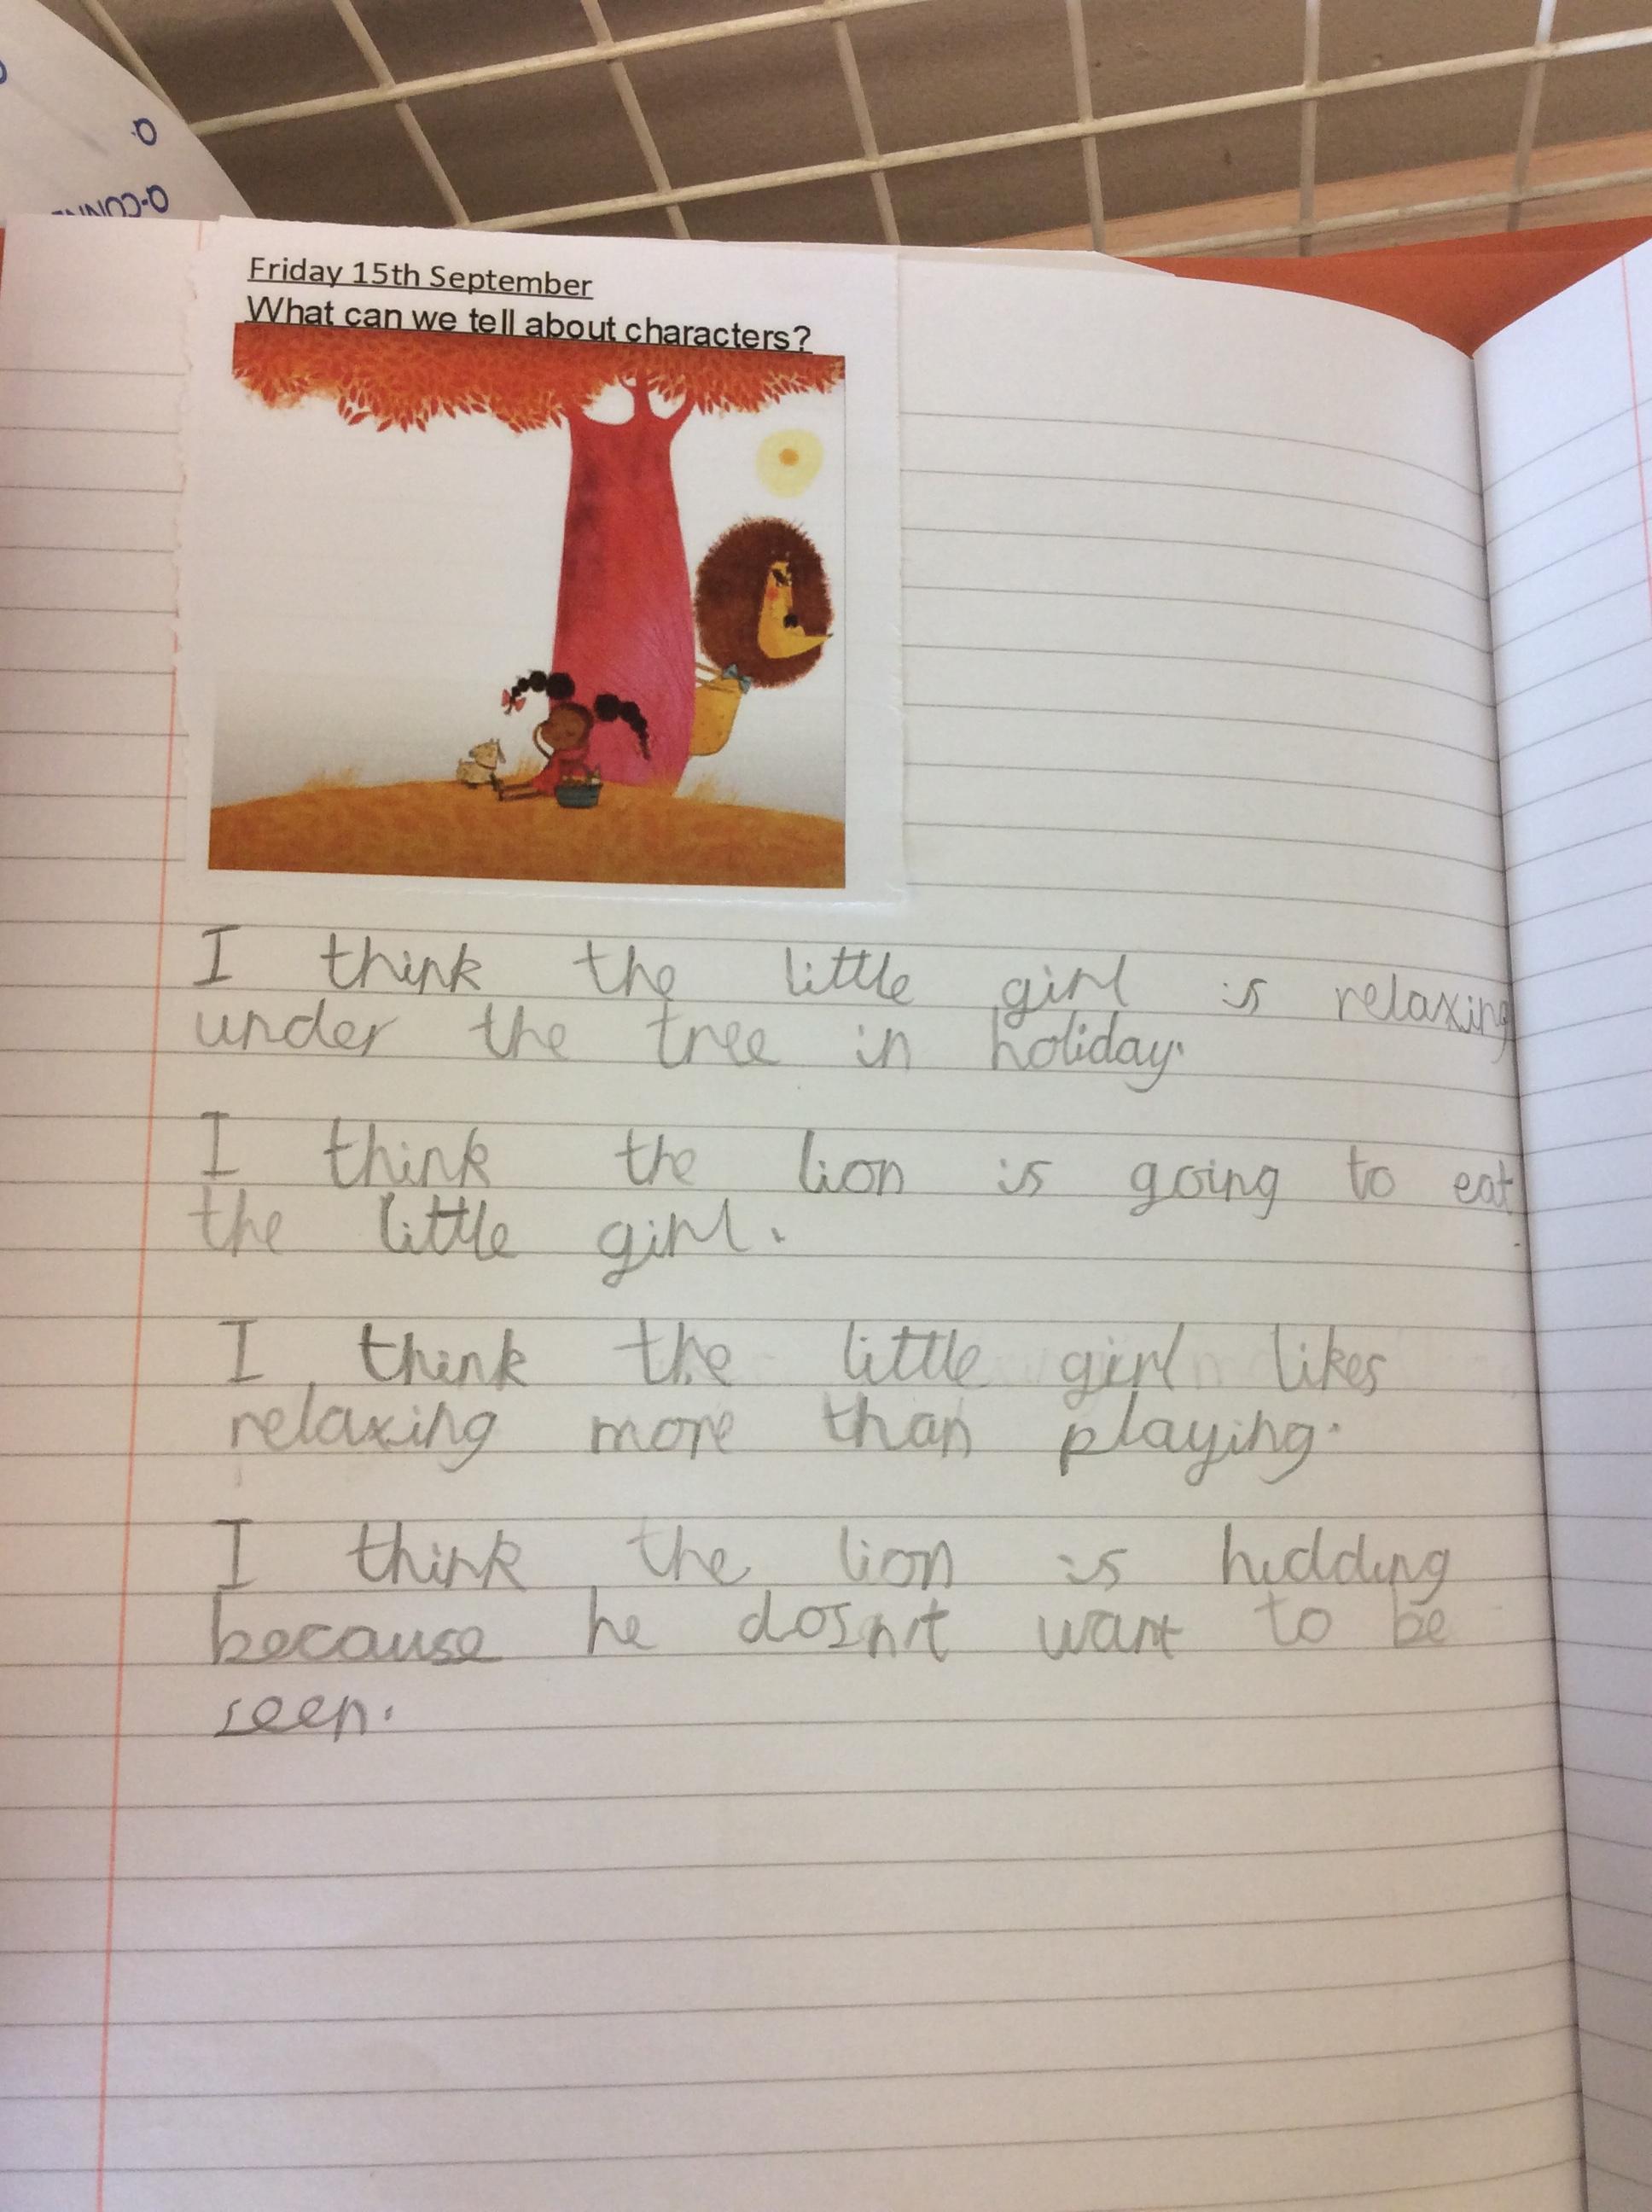 Friday 15th September
What can we tell about characters?
I think the little girl is relaxing
under the tree in holiday.
I think the lion is going to eat
the little girl.
I think the little girl likes
relaxing more than playing.
I think the lion is hidding
because he dosn't want to be
seen.